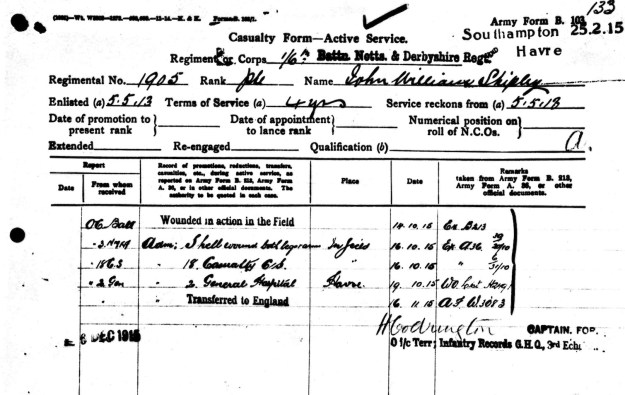 133
Casualty Form—Active Service.
Army Form B. 103
Southampton 25.2.15
Havre
Regiment or Corps 1/6th Battn. Notts. & Derbyshire Regt
Regimental No. 1905 Rank Pte Name John William Shipley
Enlisted (a) 5.5.13 Terms of Service (a) 4 yrs Service reckons from (a) 5.5.13
Date of promotion to present rank Date of appointment to lance rank Numerical position on roll of N.C.Os.
Extended Re-engaged Qualification (b)
a.
Report
Date From whom received
Record of promotions, reductions, transfers, casualties, etc., during active service, as reported on Army Form B. 213, Army Form A. 36, or in other official documents. The authority to be quoted in each case.
Place Date
Remarks taken from Army Form B. 213, Army Form A. 36, or other official documents.
OC Batt Wounded in action in the Field 14.10.15 B213
Adm; Shell wound both legs 16.10.15 A36
18 CS " 18. Casualty C.S. " 16.10.15 "
" 2 Gen " 2 General Hospital Havre. 19.10.15
Transferred to England 16.11.15 A.F. W3083
8 DEC 1915
CAPTAIN. FOR.
O i/c Terr; Infantry Records G.H.Q., 3rd Ech: